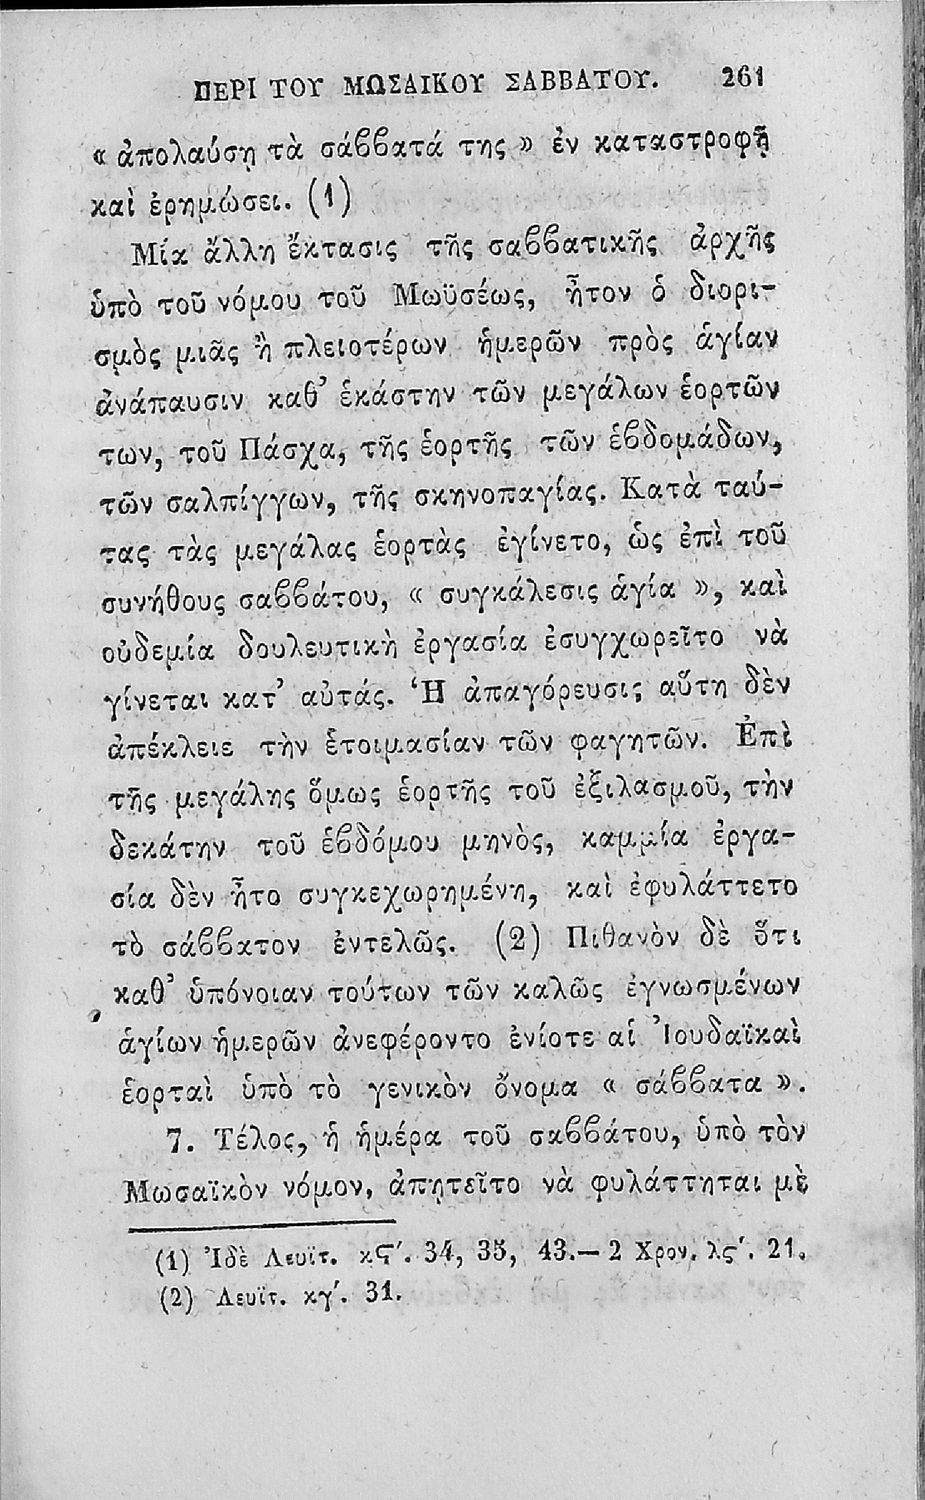 ΠΕΡΙ ΤΟΥ ΜΩΣΑΙΚΟΥ ΣΑΒΒΑΤΟΥ. 261
« ἀπολαύσῃ τὰ σάββατά της » ἐν καταστροφῇ
καὶ ἐρημώσει. (1)
Μία ἄλλη ἔκτασις τῆς σαββατικῆς ἀρχῆς
ὑπὸ τοῦ νόμου τοῦ Μωϋσέως, ἦτον ὁ διορι-
σμὸς μιᾶς ἢ πλειοτέρων ἡμερῶν πρὸς ἁγίαν
ἀνάπαυσιν καθ’ ἑκάστην τῶν μεγάλων ἑορτῶν
των, τοῦ Πάσχα, τῆς ἑορτῆς τῶν ἑβδομάδων,
τῶν σαλπίγγων, τῆς σκηνοπαγίας. Κατὰ ταύ-
τας τὰς μεγάλας ἑορτὰς ἐγίνετο, ὡς ἐπὶ τοῦ
συνήθους σαββάτου, « συγκάλεσις ἁγία », καὶ
οὐδεμία δουλευτικὴ ἐργασία ἐσυγχωρεῖτο νὰ
γίνεται κατ’ αὐτάς. Ἡ ἀπαγόρευσις αὕτη δὲν
ἀπέκλειε τὴν ἑτοιμασίαν τῶν φαγητῶν. Ἐπὶ
τῆς μεγάλης ὅμως ἑορτῆς τοῦ ἐξιλασμοῦ, τὴν
δεκάτην τοῦ ἑβδόμου μηνὸς, καμμία ἐργα-
σία δὲν ἦτο συγκεχωρημένη, καὶ ἐφυλάττετο
τὸ σάββατον ἐντελῶς. (2) Πιθανὸν δὲ ὅτι
καθ’ ὑπόνοιαν τούτων τῶν καλῶς ἐγνωσμένων
ἁγίων ἡμερῶν ἀνεφέροντο ἐνίοτε αἱ Ἰουδαϊκαὶ
ἑορταὶ ὑπὸ τὸ γενικὸν ὄνομα « σάββατα ».
7. Τέλος, ἡ ἡμέρα τοῦ σαββάτου, ὑπὸ τὸν
Μωσαϊκὸν νόμον, ἀπῃτεῖτο νὰ φυλάττηται μὲ
(1) Ἰδὲ Λευϊτ. κϚ´. 34, 35, 43.— 2 Χρον. λς´. 21.
(2) Λευϊτ. κγ´. 31.